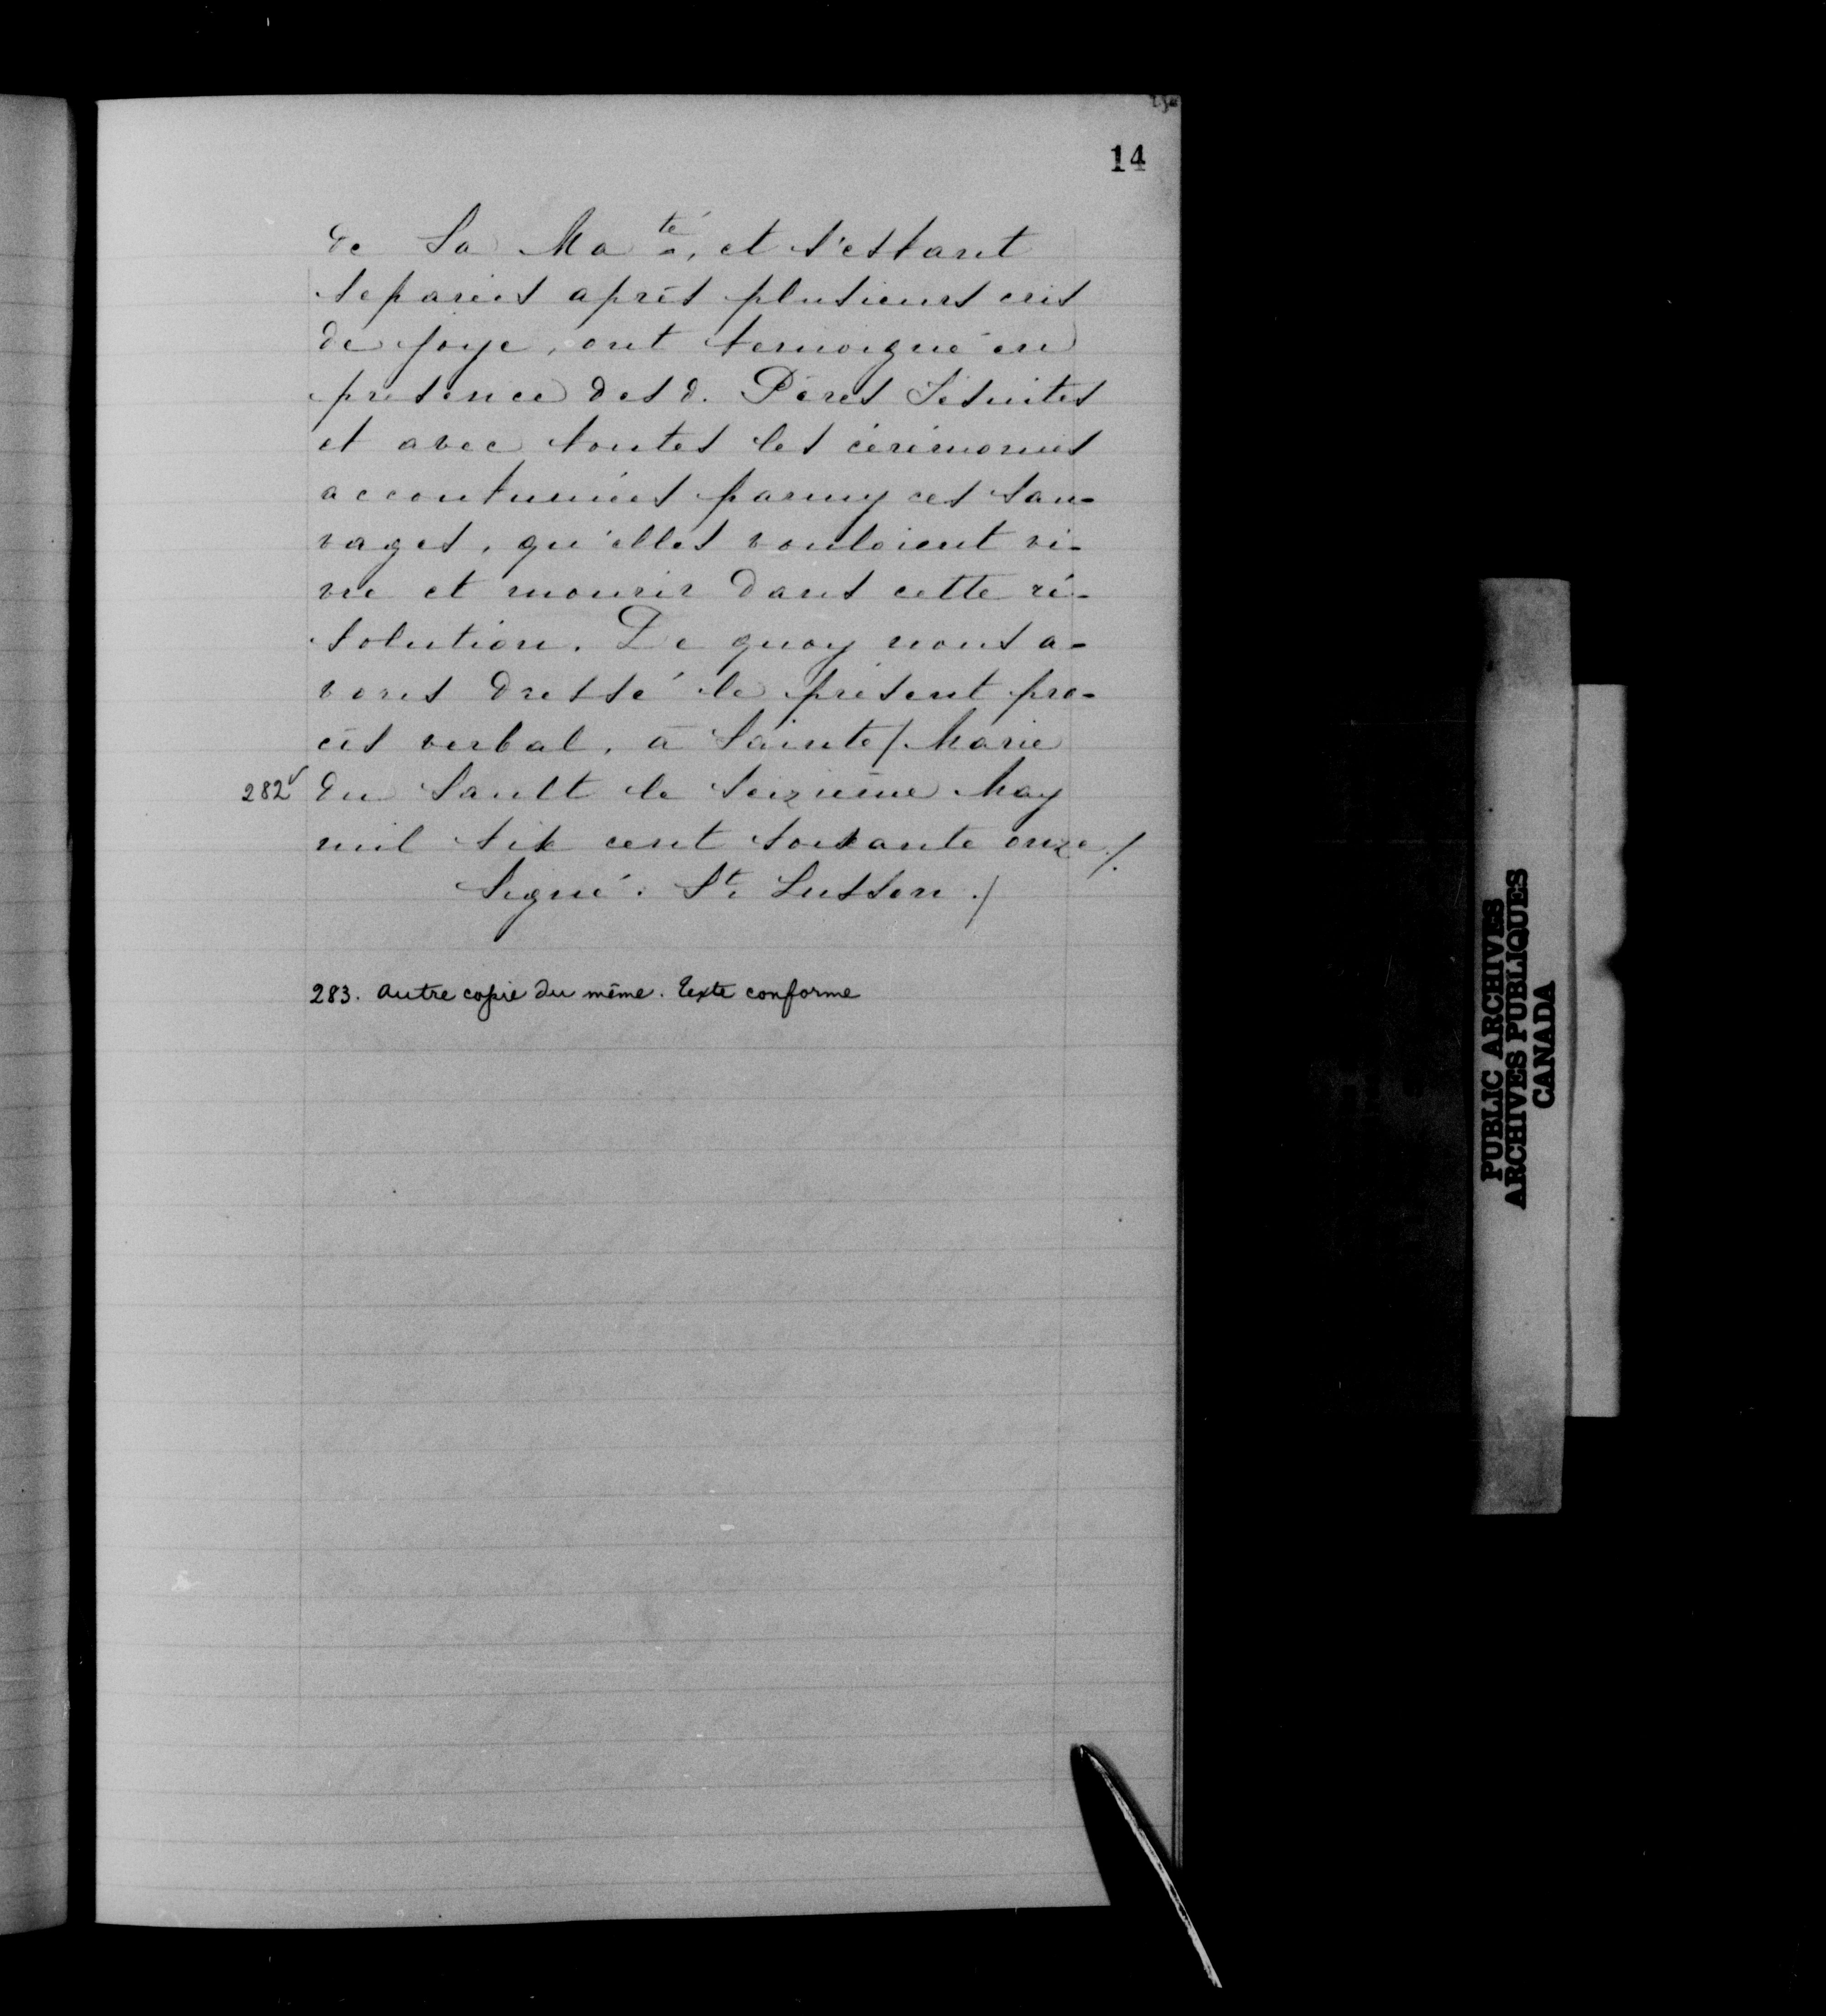 14
de Sa Ma té, et s'estant
separées après plusieurs cris
de joye, ont temoigné en
presence desd. Pères Jésuites
et avec toutes les cérémonies
accoutumées parmy ces sau-
vages, qu'elles vouloient vi-
vre et mourir dans cette ré-
solution. De quoy nous a-
vons dressé le présent pro-
cès verbal, à Sainte/Marie
282v du Sault le seizième May
mil six cent soixante onze ./.
Signé: St. Lusson ./
283. autre copie du même. Texte conforme
PUBLIC ARCHIVES
ARCHIVES PUBLIQUES
CANADA